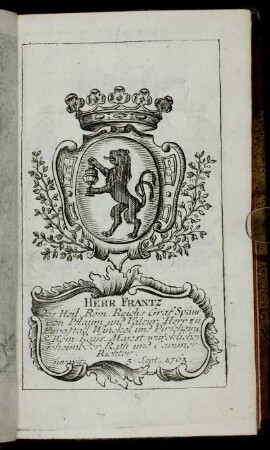 HERR FRANTZ
Des Heil. Röm. Reichs Graf Spaur
von Pflaum und Valeur, Herr zu
und
Röm. Kays. Majest. würcklicher
geheimbder Rath und Cammer
Richter
5. Sept. 1763